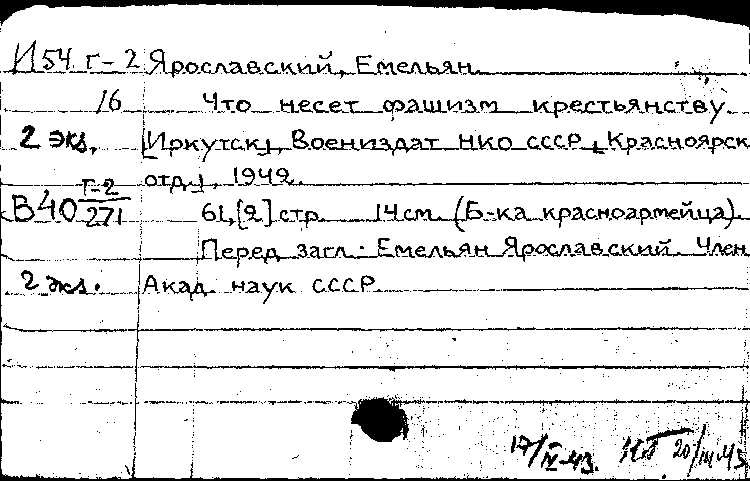 И54 Г-2 Ярославский, Емельян.
16 Что несет фашизм крестьянству.
2 экз. [Иркутск], Воениздат НКО СССР, [Красноярск
отд.], 1942.
В40 Г-2/271 61,[2] стр. 14 см. (Б-ка красноармейца).
Перед загл.: Емельян Ярославский. Член
2 экз. Акад. наук СССР.
17/IV-43. 20/III-43